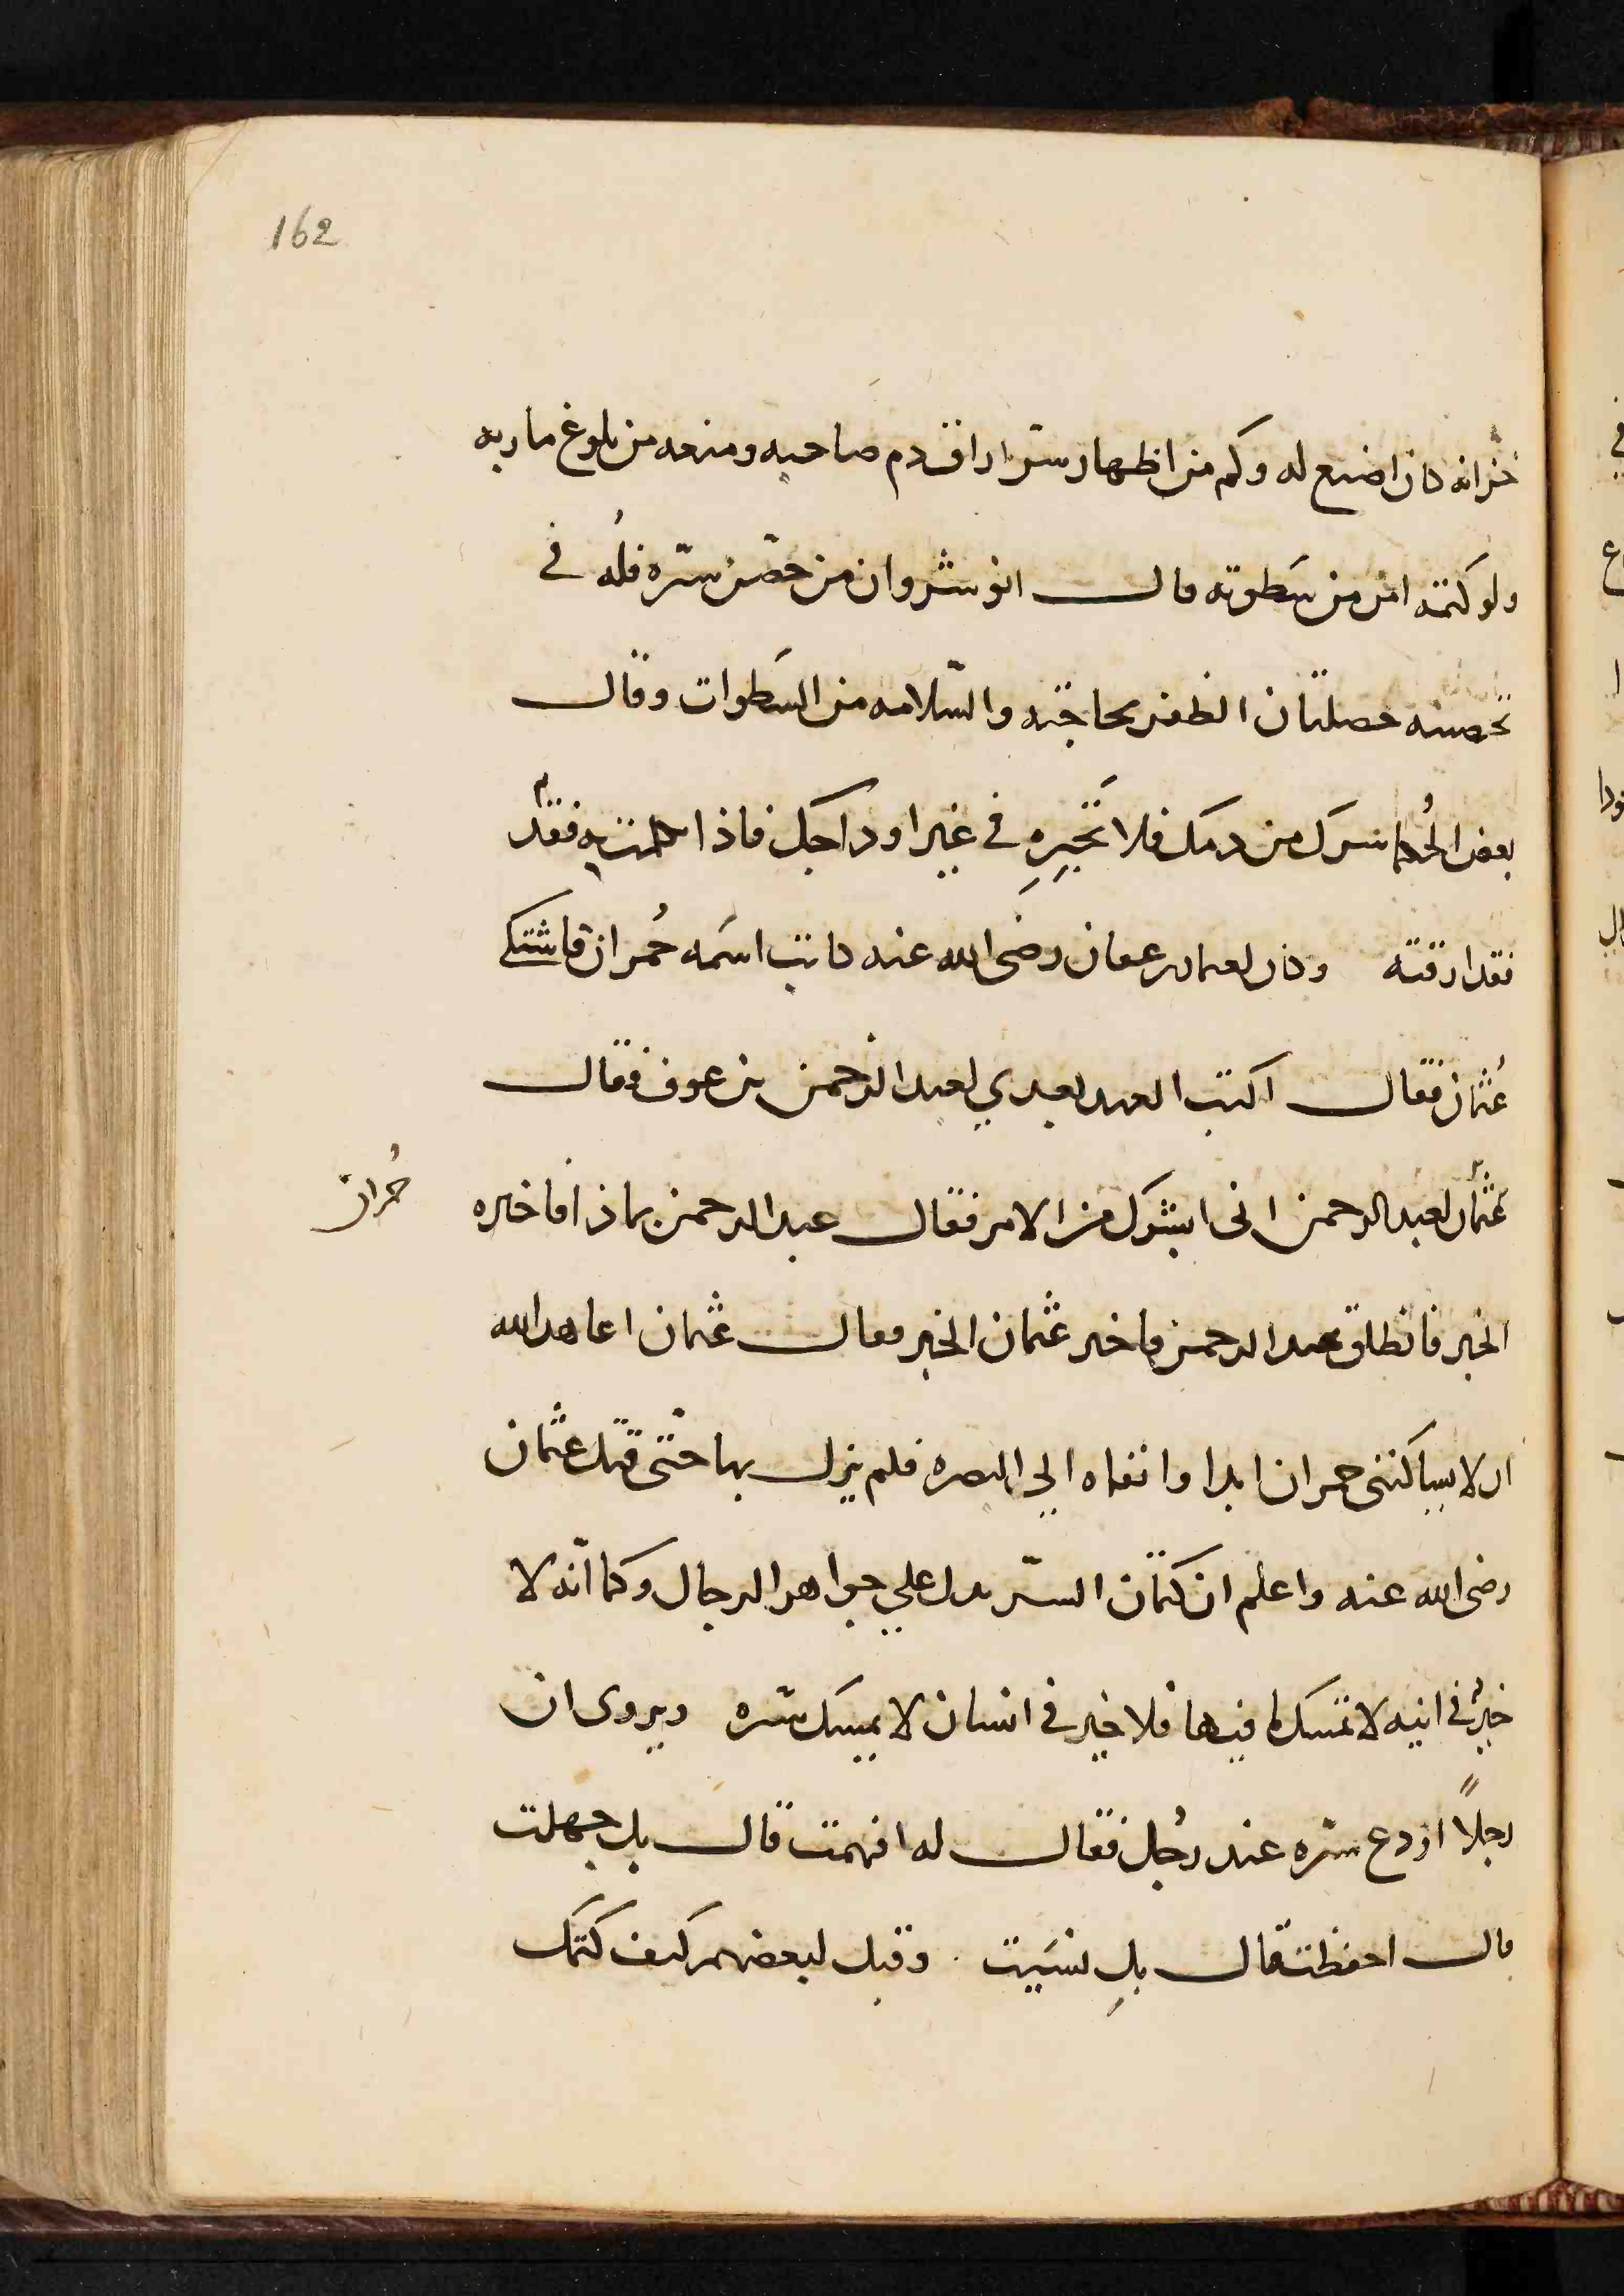 162
خزانه كان اضيع له وكم من اظهار سر اراق دم صاحبه ومنعه من بلوغ ماربه
ولو كتمه امن من سطوته قال انوشروان من حصّن سرّه فلُه في
تحصينه خصلتان الظفر بحاجته والسّلامه من السَطوات وقال
بعض الحُكما سرك من دمك فلا تَجْيرِهِ في غير اوداجك فاذا تكلمت به فقد
فقد ارقته وكان لعثمان بن عفان رضى الله عنه كاتب اسمَه حُمران فاشتكى
عُثمان فقال اكتب العهد بعدي لعبد الرحمن بن عوف فقال
حُمران
عثمان لعبد الرحمن انى ابشرك من الامر فقال عبد الرحمن بماذا فاخبره
الخبر فانطلق عبد الرحمن فاخبر عثمان الخبر فقال عثمان اعاهد الله
ان لا يساكننى حمران ابدا وانفاه الي البصره فلم يزل بها حتّى قتل عثمان
رضى الله عنه واعلم ان كتمان السرّ يدل علي جواهر الرجال وكما انّه لا
خيرٌ في انيه لا تمسك ما فيها فلا خير في انسان لا يمسك سّره ويروى ان
رجلاً اودع سرّه عند رجُل فقال له افهمت قال بل جهلت
قال احفظت قال بل نسَيت وقيل لبعضهم كيف كتمك